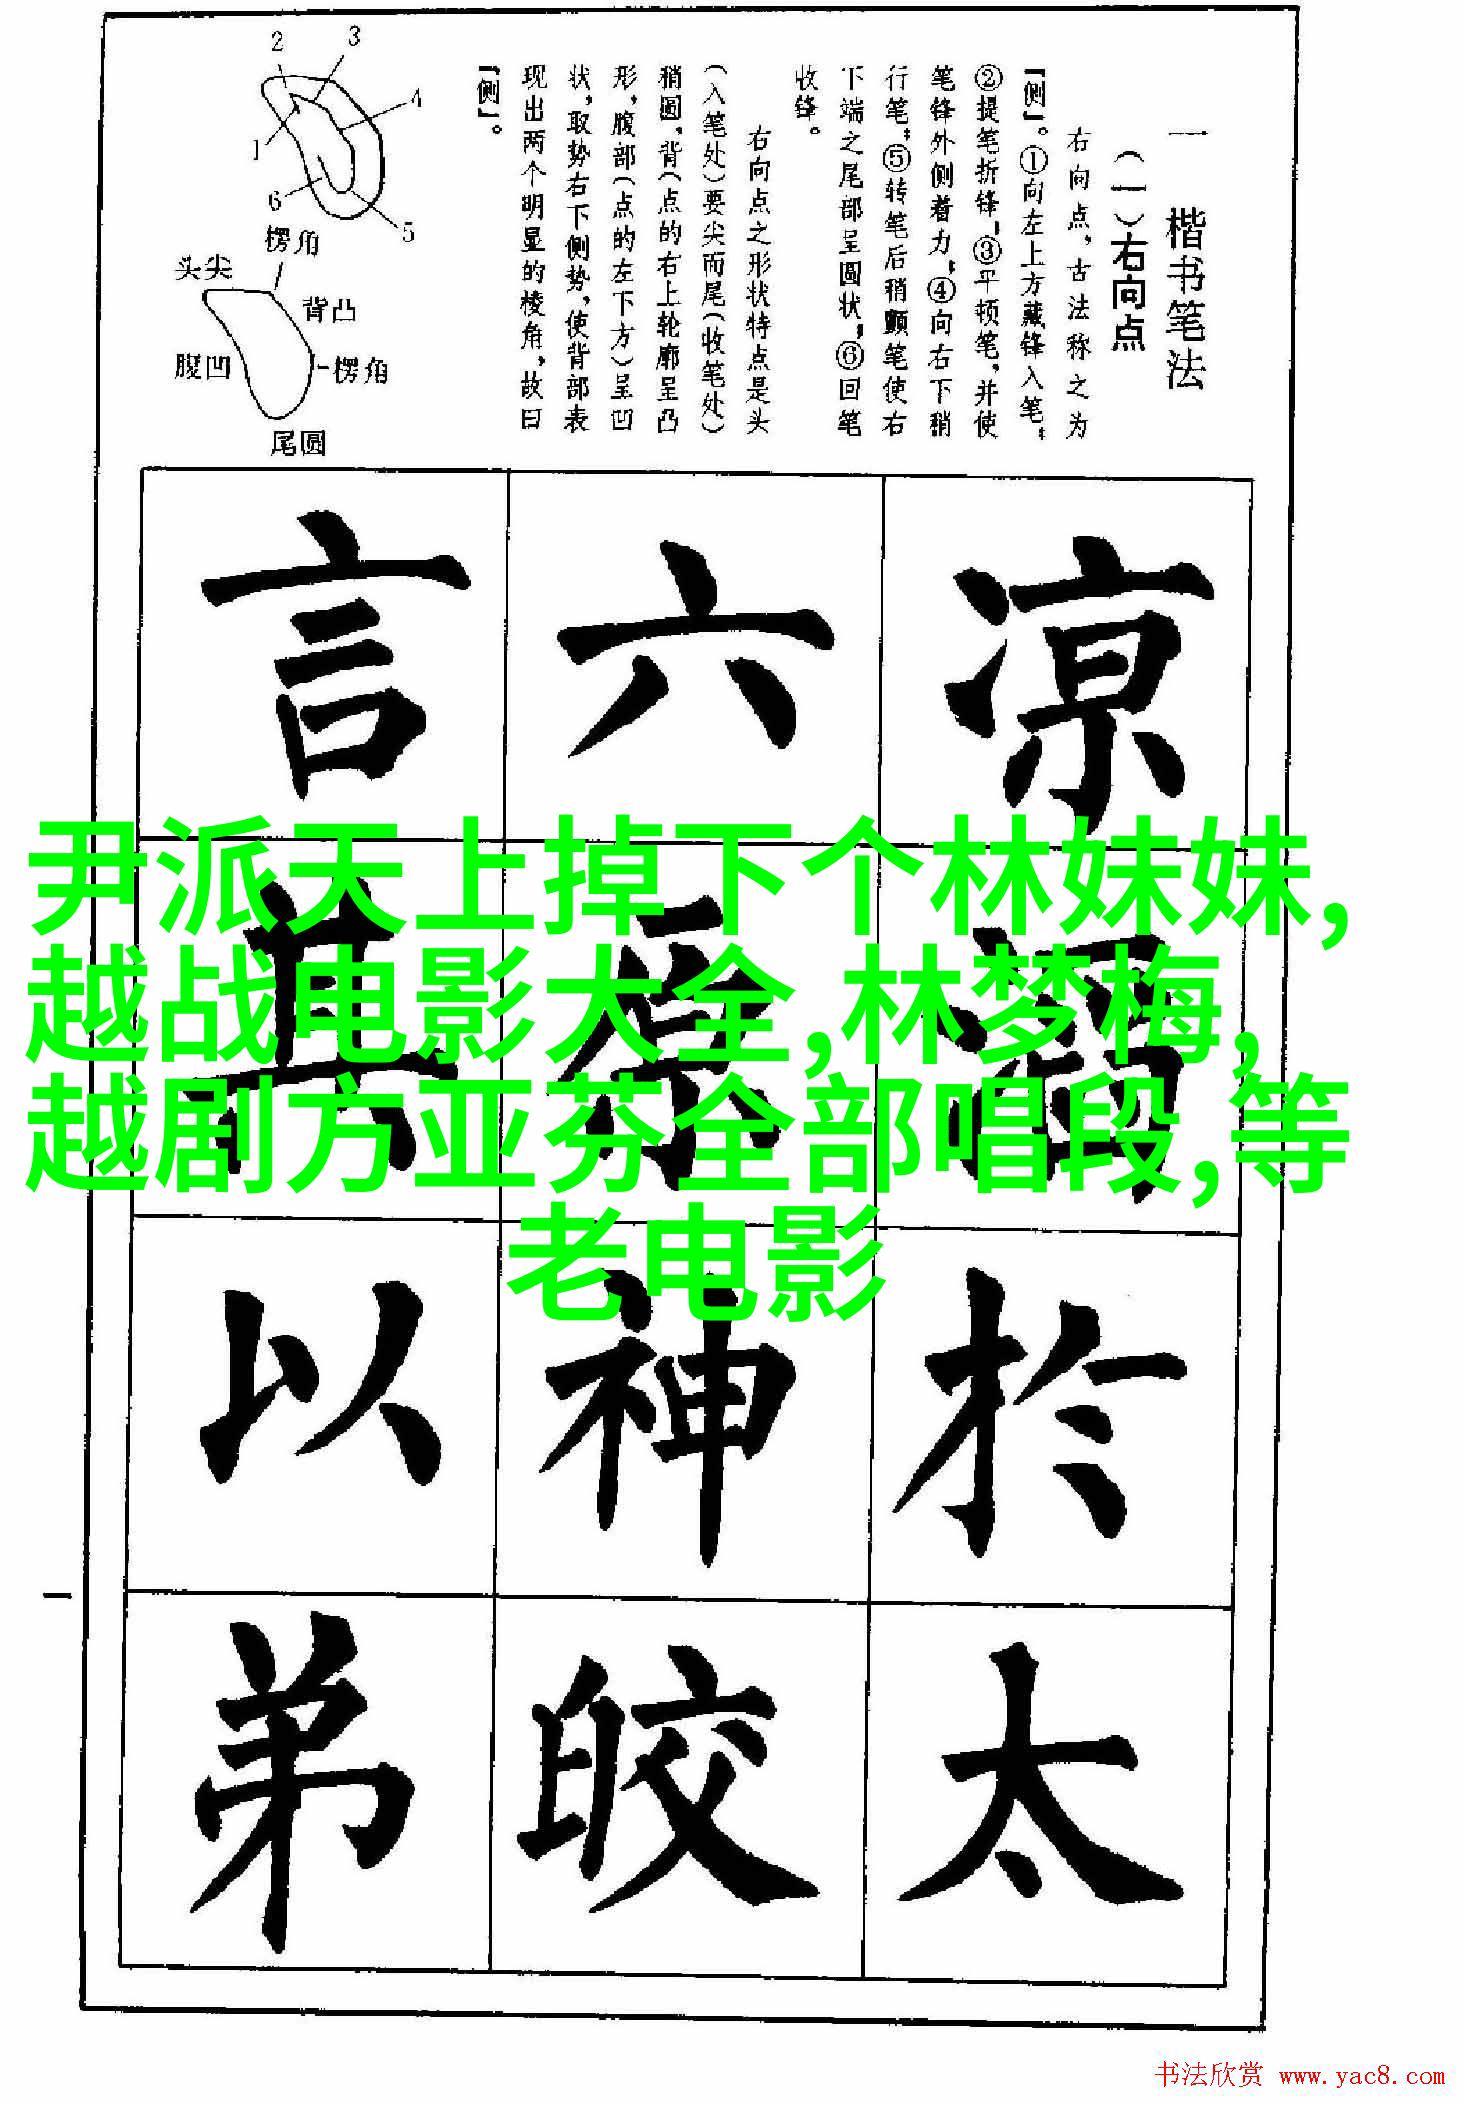 一 楷书笔法
(一)右向点
右向点，古法称之为
『侧』。①向左上方藏锋入笔；
②提笔折锋；③平顿笔，并使
笔锋外侧着力；④向右下稍
行笔；⑤转笔后稍颤笔使右
下端之尾部呈圆状；⑥回笔
收锋。
右向点之形状特点是头
(入笔处)要尖而尾(收笔处)
稍圆，背(点的右上轮廓呈凸
形，腹部(点的左下方)呈凹
状，取势右下侧势，使背部表
现出两个明显的棱角，故曰
『侧』。
2 3
4
1
6 5
楞角
头尖
背凸
腹凹 楞角
尾圆
凉 六 言
尹派天上掉下个林妹妹,
越战电影大全,林梦梅,
越剧方亚芬全部唱段,等
老电影
於 神 以
太 皎 弟
一
书法欣赏 www.yac8.com